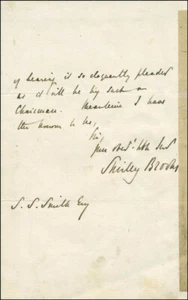 of hearing it so eloquently pleaded
as it will be by such a
Chairman. Meantime I have
the honour to be,
Sir,
Your obedt.
Shirley Brooks
S. S. Smith Esq